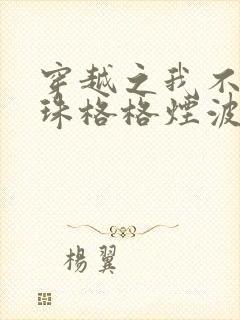 穿越之我不
珠格格煙波
楊翼